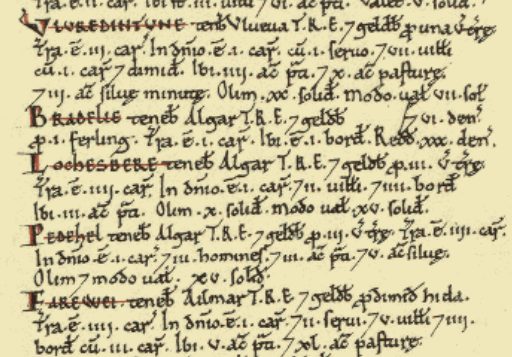 Tra.ē.ii. car. Ibi st̄.iii. uilli 7 vi. ac̄ p̄ti. Valet. v. solid.
VLVREDINTVNE. teneƀ Vlureua T.R.E. 7 geldƀ p una v̄ træ.
Tra.ē.iii. car̄. In dn̄io.ē.i. car̄. cū.i. seruo. 7 vii. uilli
cū.i. car̄ 7 dimid. Ibi.iiii. ac̄ p̄ti. 7 x. ac̄ pasturę.
7 iii. ac̄ siluę minutę. Olim. xx. solid. Modo ual̄ vii. sol̄
BRADELIE teneƀ Algar T.R.E. 7 geldƀ 7 vi. den̄.
p.i. ferling. Tra.ē.i. car̄. Ibi.ē.i. bord̄. Redd̄. xxx. den̄.
LOCHESBERE teneƀ Algar T.R.E. 7 geldƀ p.iii. v̄ træ.
Tra.ē.iiii. car̄. In dn̄io.ē.i. car̄. 7 ii. uilli. 7 iiii. bord̄
Ibi.iii. ac̄ p̄ti. Olim. x. solid̄. Modo ual̄. xv. solid̄.
PEDEHEL teneƀ Algar T.R.E. 7 geldƀ p.iii. v̄ træ. Tra.ē.iiii. car̄.
In dn̄io.ē.i. car̄. 7 iii. homines. 7 iii. ac̄ p̄ti. 7 v. ac̄ siluę.
Olim 7 modo ual̄. xv. solid̄.
FAREWEI teneƀ Ailmar T.R.E. 7 geldƀ p dimid hida.
Tra.ē.iii. car̄. In dn̄io.ē.i. car̄. 7 ii. serui. 7 v. uilli 7 iiii.
bord̄ cū.iii. car̄. Ibi. v. ac̄ p̄ti. 7 xl. ac̄ pasturę.